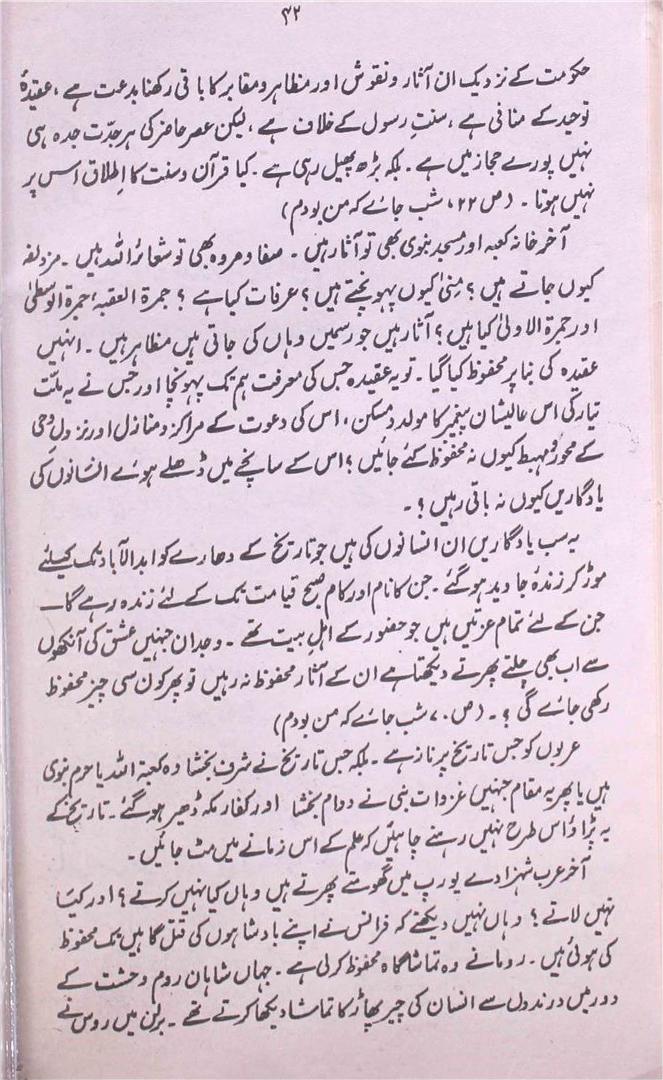 ۴۲
حکومت کے نزدیک ان آثار و نقوش اور مظاہر و مقابر کا باقی رکھنا بدعت ہے ، عقیدۂ
توحید کے منافی ہے ، سنتِ رسول کے خلاف ہے ، لیکن عصر حاضر کی ہر جدّت جدہ ہی
نہیں پورے حجاز میں ہے ۔ بلکہ بڑھ پھیل رہی ہے ۔ کیا قرآن و سنت کا اِطلاق اس پر
نہیں ہوتا ۔ (ص ۲۲ ، شب جائے کہ من بودم)
آخر خانہ کعبہ اور مسجد نبوی بھی تو آثار ہیں ۔ صفا و مروہ بھی تو شعائر اللہ ہیں ۔ مزدلفہ
کیوں جاتے ہیں ؟ مِنیٰ کیوں پہونچتے ہیں ؟ عرفات کیا ہے ؟ جمرۃ العقبہ ، جمرۃ الوسطیٰ
اور جمرۃ الاولیٰ کیا ہیں ؟ آثار ہیں جو رسمیں وہاں کی جاتی ہیں مظاہر ہیں ۔ انہیں
عقیدہ کی بنا پر محفوظ کیا گیا ۔ تو یہ عقیدہ جس کی معرفت ہم تک پہونچا اور جس نے یہ ملّت
تیار کی اس عالیشان پیغمبر کا مولد و مسکن ، اس کی دعوت کے مراکز و منازل اور نزولِ وحی
کے محور و مہبط کیوں نہ محفوظ کئے جائیں ؟ اس کے سانچے میں ڈھلے ہوئے انسانوں کی
یادگاریں کیوں نہ باقی رہیں ؟ ۔
یہ سب یادگاریں ان انسانوں کی ہیں جو تاریخ کے دھارے کو ابدالآباد تک کیلئے
موڑ کر زندۂ جاوید ہو گئے ۔ جن کا نام اور کام صبح قیامت تک کے لئے زندہ رہے گا ــــ
جن کے لئے تمام عزتیں ہیں جو حضور کے اہل بیت تھے ۔ وجدان جنہیں عشق کی آنکھوں
سے اب بھی چلتے پھرتے دیکھتا ہے ان کے آثار محفوظ نہ رہیں تو پھر کون سی چیز محفوظ
رکھی جائے گی ؟ ۔ (ص ۷۰ شب جائے کہ من بودم)
عربوں کو جس تاریخ پر ناز ہے ۔ بلکہ جس تاریخ نے شرف بخشا وہ کعبۃ اللہ یا حرم نبوی
ہیں یا پھر یہ مقام جنہیں غزوات نبی نے دوام بخشا اور کفار مکہ ڈھیر ہو گئے ۔ تاریخ کے
یہ پڑاؤ اس طرح نہیں رہنے چاہئیں کہ علم کے اس زمانے میں مٹ جائیں ۔
آخر عرب شہزادے یورپ میں گھومتے پھرتے ہیں وہاں کیا نہیں کرتے ؟ اور کیا
نہیں لاتے ؟ وہاں نہیں دیکھتے کہ فرانس نے اپنے بادشاہوں کی قتل گاہیں تک محفوظ
کی ہوئی ہیں ۔ روما نے وہ تماشا گاہ محفوظ کرلی ہے ۔ جہاں شاہان روم وحشت کے
دور میں درندوں سے انسان کی چیر پھاڑ کا تماشا دیکھا کرتے تھے ۔ برلن میں روس نے